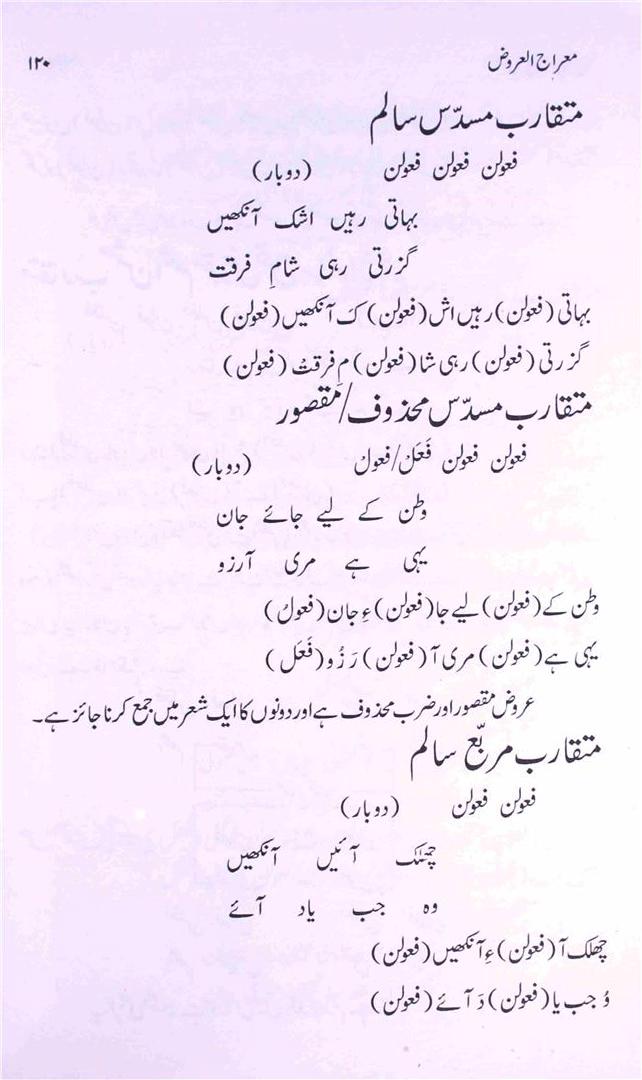 معراج العروض
۱۲۰
متقارب مسدّس سالم
فعولن فعولن فعولن (دوبار)
بہاتی رہیں اشک آنکھیں
گزرتی رہی شامِ فرقت
بہاتی (فعولن) رہیں اش (فعولن) ک آنکھیں (فعولن)
گزرتی (فعولن) رہی شا (فعولن) مِ فرقتْ (فعولن)
متقارب مسدّس محذوف/مقصور
فعولن فعولن فَعَلْ/فعولْ (دوبار)
وطن کے لیے جائے جان
یہی ہے مری آرزو
وطن کے (فعولن) لیے جا (فعولن) ءِ جان (فعولْ)
یہی ہے (فعولن) مری آ (فعولن) رَزُو (فَعَل)
عروض مقصور اور ضرب محذوف ہے اور دونوں کا ایک شعر میں جمع کرنا جائز ہے۔
متقارب مربّع سالم
فعولن فعولن (دوبار)
چھلک آئیں آنکھیں
وہ جب یاد آئے
چھلک آ (فعولن) ءِ آنکھیں (فعولن)
وُ جب یا (فعولن) دَ آئے (فعولن)